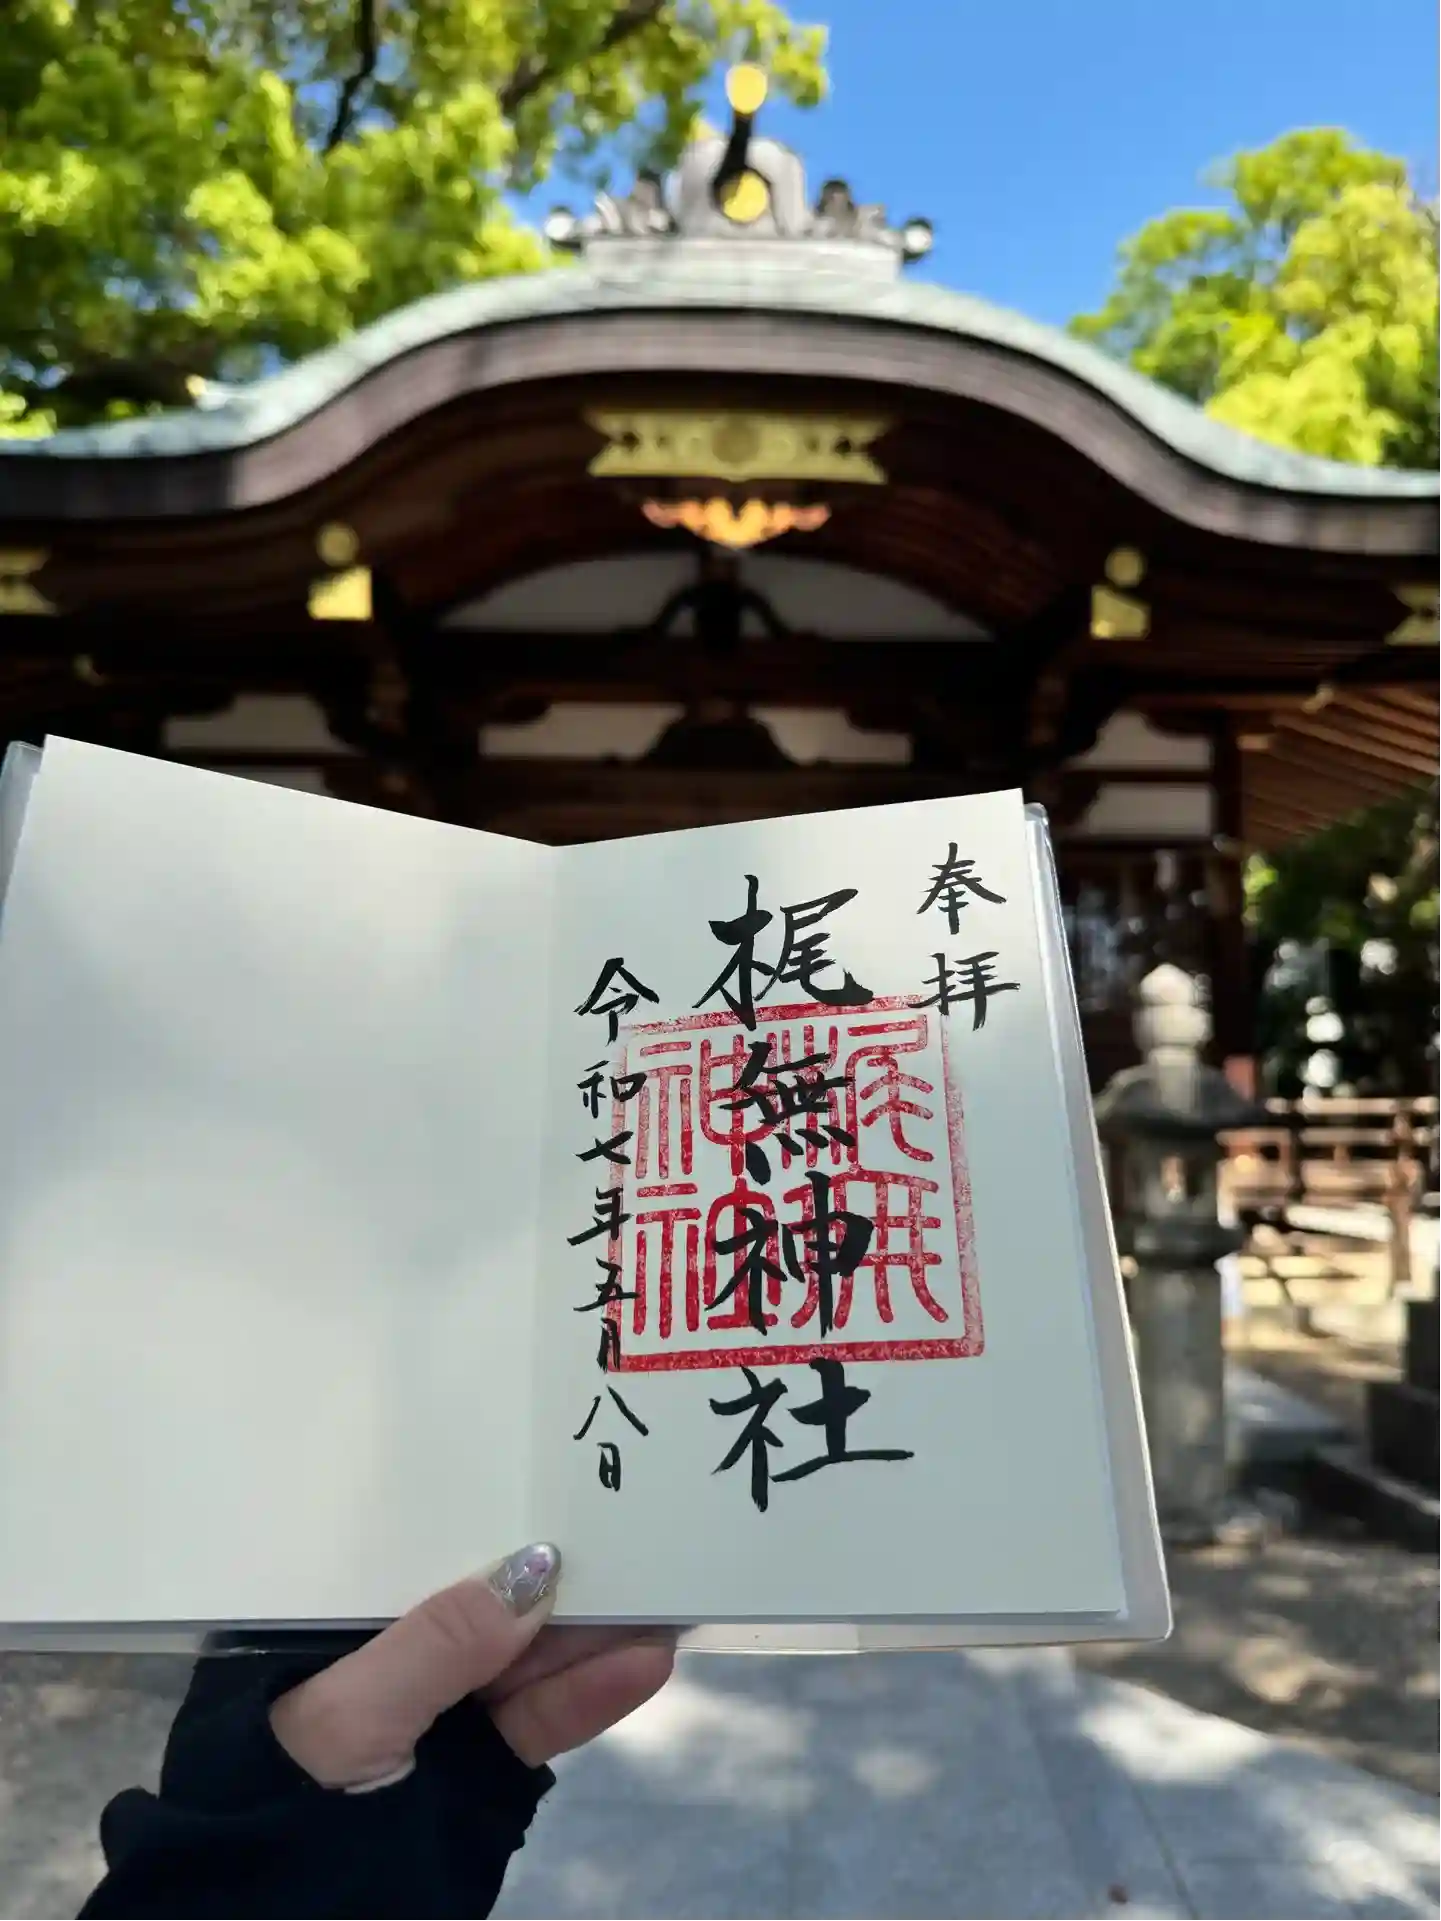 奉拝
梶無神社
梶無神社
令和七年五月八日